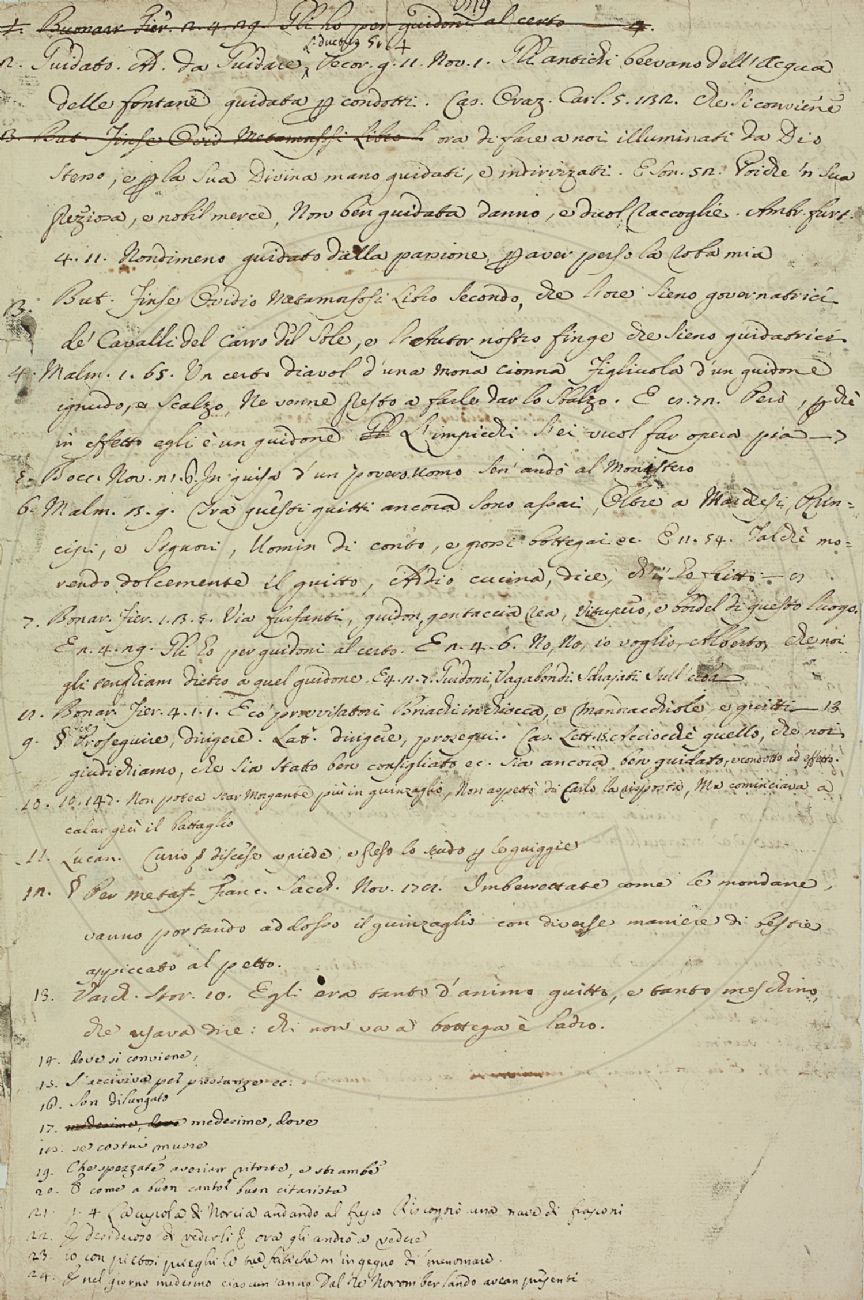 1. Buonarr. Fier. 2. 4. 29. Gli ho per guidoni al certo 4.
2. Guidato. Ad. da Guidare, Pecor. g. 11. Nov. 1. Gli antichi beevano dell'Acqua
delle fontane guidata p condotti. Cas. Oraz. Carl. 5. 132. che si conviene
3. But. Finse Ovid Metamorfosi Libro ora di fare a noi illuminati da Dio
stesso, e p la sua Divina mano guidati, e indirizzati. E Son. 52. Poiche 'n sua
preziosa, e nobil merce, Non ben guidata danno, e duol raccoglie. Ambr. furt.
4. 11. Nondimeno guidato dalla passione, p aver perso la roba mia
13. But. Finse Ovidio Metamorfosi Libro Secondo, che l'ore sieno governatrici
de' Cavalli del Carro del Sole, e l'Autor nostro finge che sieno guidatrici
4. Malm. 1. 65. Un certo diavol d'una mona cionna Figliuola d'un guidone
ignudo, e scalzo, Ne venne presto a farle dar lo sbalzo. E Però, p che
in effetto egli è un guidone L'impicchi S'ei vuol far opera pia
5. Bocc. Nov. 21. 6. In guisa d'un povero uomo sen' andò al Monistero
6. Malm. g. Ora questi guitti ancora sono assai, Oltre a Marchesi, Prin-
cipi, e Signori, Uomin di conto, e grossi bottegai ec. E 11. 54. Talchè mo-
rendo dolcemente il guitto, Addio cucina, dice, ch'i' ho fritto
7. Bonar. Fier. 1. 3. 5. Via furfanti, guidon, gentaccia rea, Vitupero, e bordel di questo luogo.
E 2. 4. 29. Gli ho per guidoni al certo. E 2. 4. 6. No, No, io voglio, Alberto, che noi
gli tenghiam dietro a quel guidone. E 4. 2. 7. Guidoni, Vagabondi Sdrajati sull'
12. Bonar. Fier. 4. 1. 1. Ed provvisatori Briachi in chiocca, e e guitti 13
9. § Proseguire, dirigere. Lat. dirigere, prosequi. Cas. Lett. acciocchè quello, che noi
giudichiamo, che sia stato ben consigliato ec. sia ancora ben guidato, e condotto ad effetto.
10. 10. 147. Non potea star Morgante più in guinzaglio, Non aspettò di Carlo la risposta, Ma cominciava a
calar giù il battaglio
11. Lucan. Curio discese a piede, e prese lo scudo p le guigge
12. § Per metaf. Franc. Sacch. Nov. 178. Imberrettate come le mondane,
vanno portando addosso il guinzaglio con diverse maniere di bestie
appiccato al petto.
13. Varch. Stor. 10. Egli era tanto d'animo guitto, e tanto meschino,
che usava dire: chi non va a bottega è ladro.
14. dove si conviene,
15. S' pel prestanze ec.
16. Son dilungato
17. medesime, dove medesime, dove
18. se costui muore
19. Che spezzate averian ritorte, e strambe
20. E come a buon cantor buon citarista
21. 1. 4 La cupola di Norcia andando al fresco Riscontrò una nave di frasconi
22. E desideroso di vederli ora gli andò a vedere
23. io con pietosi prieghi le tue fatiche m'ingegno di menomare.
24. E nel giorno medesimo ciascun anno Dal Re Noromberlando avean presenti